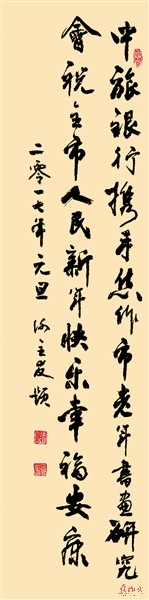 中旅银行携手焦作市老年书画研究
会祝全市人民新年快乐幸福安康
二零一七年元旦 许主岌题